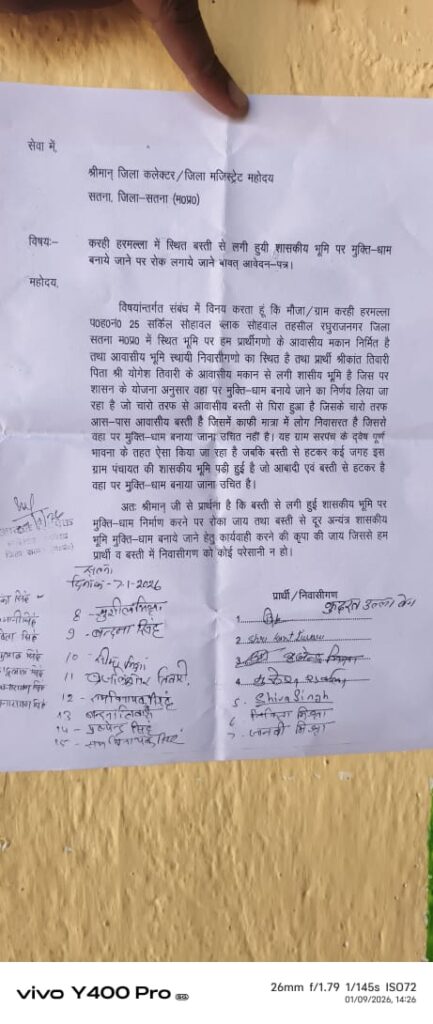 सेवा में,
श्रीमान् जिला कलेक्टर/जिला मजिस्ट्रेट महोदय
सतना, जिला-सतना (म०प्र०)
विषयः- करही हरमल्ला में स्थित बस्ती से लगी हुयी शासकीय भूमि पर मुक्ति-धाम
बनाये जाने पर रोक लगाये जाने बावत् आवेदन-पत्र।
महोदय,
विषयांन्तर्गत संबंध में विनय करता हूं कि मौजा/ग्राम करही हरमल्ला
प०ह०नं० 25 सर्किल सोहावल ब्लाक सोहवाल तहसील रघुराजनगर जिला
सतना म०प्र० में स्थित भूमि पर हम प्रार्थीगणो के आवासीय मकान निर्मित है
तथा आवासीय भूमि स्थायी निवासीगणो का स्थित है तथा प्रार्थी श्रीकांत तिवारी
पिता श्री योगेश तिवारी के आवासीय मकान से लगी शासीय भूमि है जिस पर
शासन के योजना अनुसार वहा पर मुक्ति-धाम बनाये जाने का निर्णय लिया जा
रहा है जो चारो तरफ से आवासीय बस्ती से घिरा हुआ है जिसके चारो तरफ
आस-पास आवासीय बस्ती है जिसमें काफी मात्रा में लोग निवासरत है जिससे
वहा पर मुक्ति-धाम बनाया जाना उचित नही है। यह ग्राम सरपंच के द्वेष पूर्ण
भावना के तहत ऐसा किया जा रहा है जबकि बस्ती से हटकर कई जगह इस
ग्राम पंचायत की शासकीय भूमि पढी हुई है जो आबादी एवं बस्ती से हटकर है
वहा पर मुक्ति-धाम बनाया जाना उचित है।
अतः श्रीमान् जी से प्रार्थना है कि बस्ती से लगी हुई शासकीय भूमि पर
मुक्ति-धाम निर्माण करने पर रोका जाय तथा बस्ती से दूर अन्यंत्र शासकीय
भूमि मुक्ति-धाम बनाये जाने हेतु कार्यवाही करने की कृपा की जाय जिससे हम
प्रार्थी व बस्ती में निवासीगण को कोई परेसानी न हो।
सतना
दिनांक-7-1-2026
प्रार्थी/निवासीगण
1.
2. Shri Kant
3.
4.
5. Shiva Singh
6. मिश्रा
7. जानवी मिश्रा
8 - सुशील मिश्रा
9 - वन्दना सिंह
10 -
11 तिवारी
12 - सिंह
13
14 - पुष्पेन्द्र सिंह
15 - सिंह
vivo Y400 Pro 5G
26mm f/1.79 1/145s ISO72
01/09/2026, 14:26